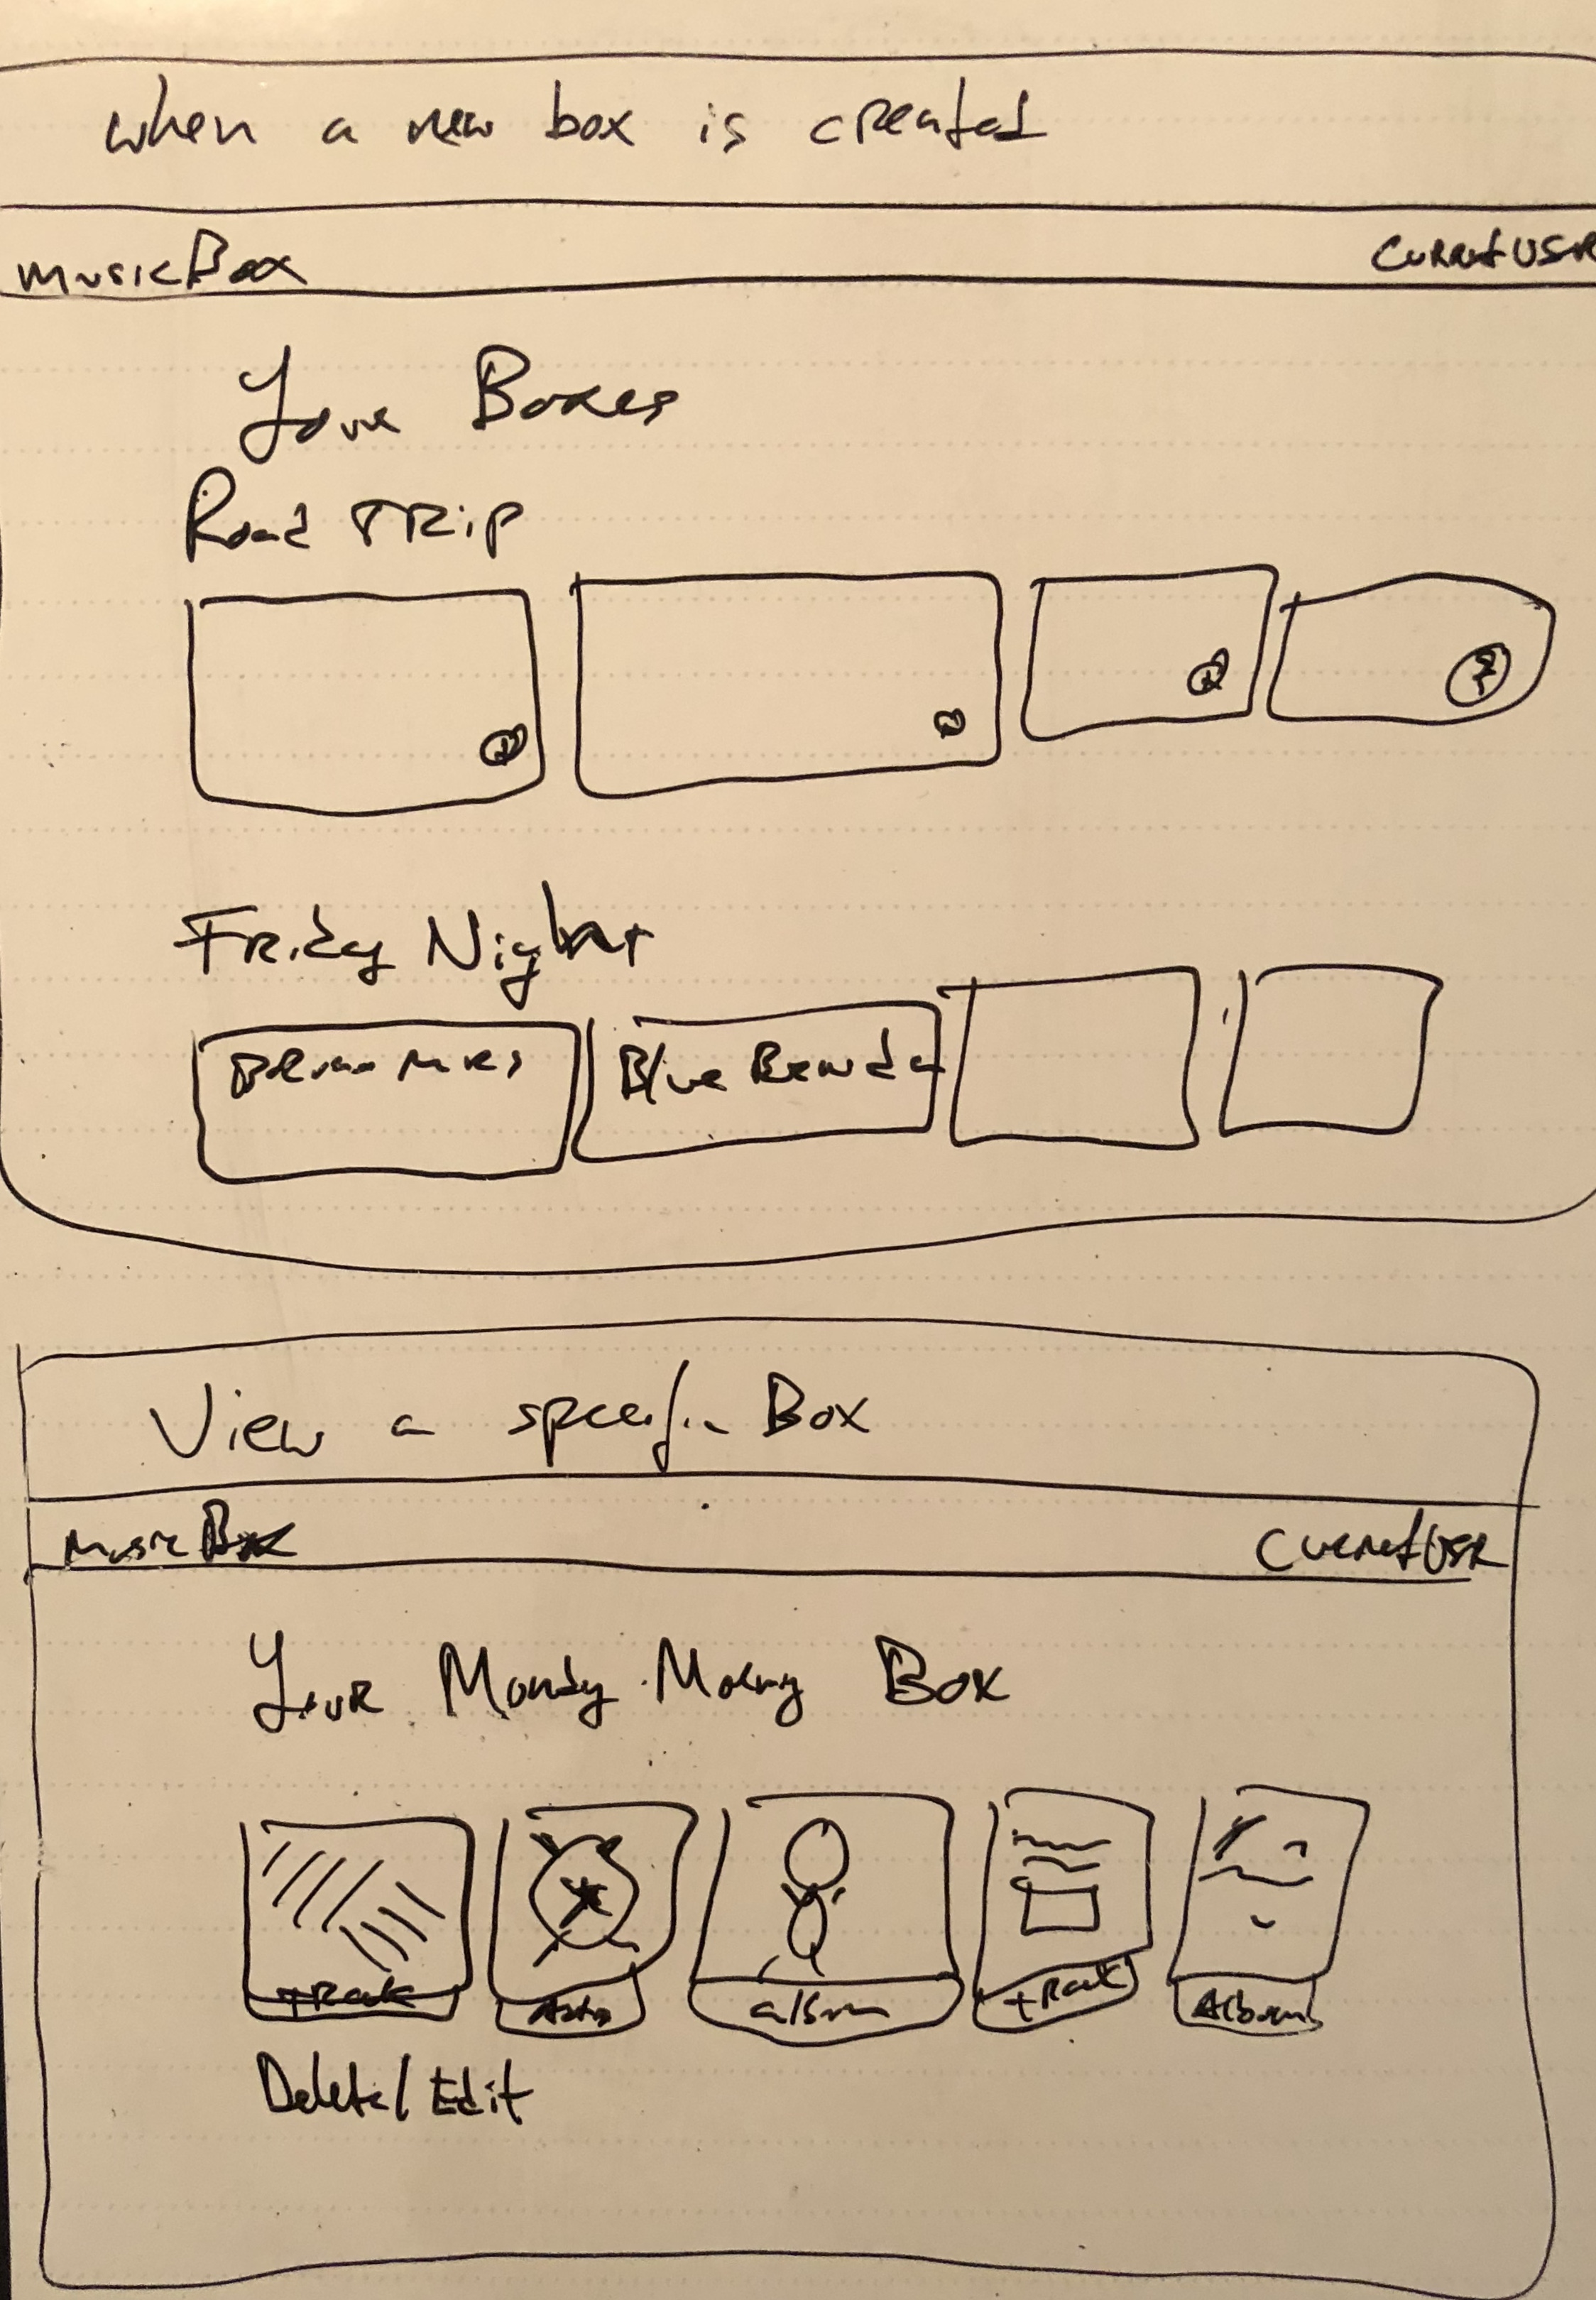 when a new box is created
musicBox CurrentUSR
Your Boxes
Road TRip
Friday Night
Bruno Mars Blue
View a specific Box
Music Box CurrentUSR
Your Monday Morning Box
track album track Album
Delete/Edit